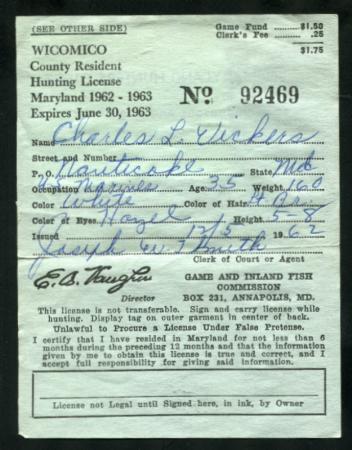 (SEE OTHER SIDE)
Game Fund ........ $1.50
Clerk's Fee ...... .25
$1.75
WICOMICO
County Resident
Hunting License
Maryland 1962 - 1963
Expires June 30, 1963
No 92469
Name Charles L. Vickers
Street and Number
P. O. Nanticoke State Md
Occupation Age 35 Weight 160
Color White Color of Hair
Color of Eyes Hazel Height 5-8
Issued 12/5 1962
Joseph W. T. Smith
Clerk of Court or Agent
E. B. Vaughn
Director
GAME AND INLAND FISH
COMMISSION
BOX 231, ANNAPOLIS, MD.
This license is not transferable. Sign and carry license while
hunting. Display tag on outer garment in center of back.
Unlawful to Procure a License Under False Pretense.
I certify that I have resided in Maryland for not less than 6
months during the preceding 12 months and that the information
given by me to obtain this license is true and correct, and I
accept full responsibility for giving said information.
License not Legal until Signed here, in ink, by Owner